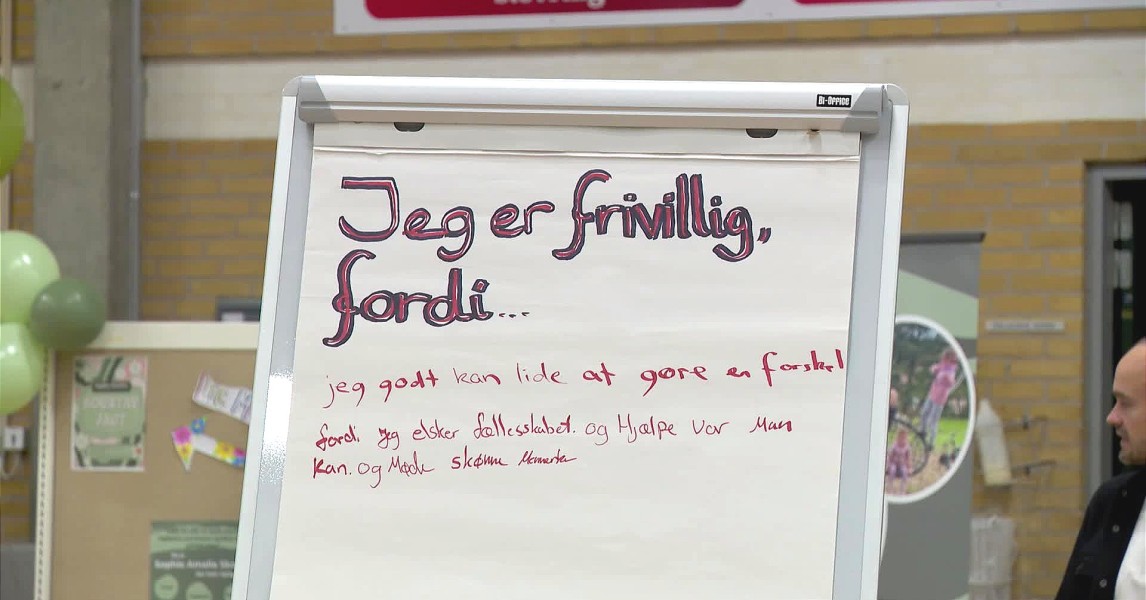 BI-OFFICE
Jeg er frivillig,
fordi...
jeg godt kan lide at gøre en forskel
fordi jeg elsker fællesskabet. og Hjælpe vor Man
kan. og Møde skønne
Sophia Amalie